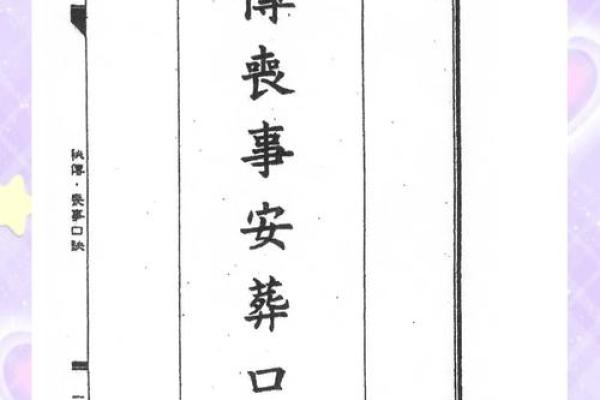 傳喪事安葬口
秘傳·喪事口訣
一